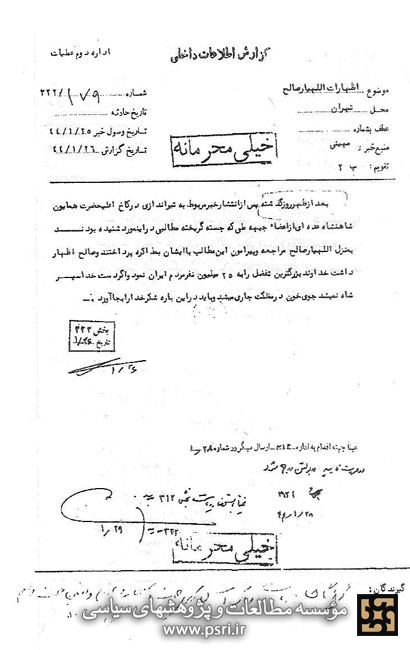 گزارش اطلاعات داخلی
اداره دوم عملیات
موضوع اظهارات اللهیار صالح
شماره ۳۲۲/۱۷۹
محل تهران
تاریخ حادثه
عطف بشماره
تاریخ وصول خبر ۴۴/۱/۲۵
منبع خبر: میهنی
تاریخ گزارش ۴۴/۱/۲۶
تقویم: ب ۲
خیلی محرمانه
بعد از ظهر روز گذشته پس از انتشار خبر مربوط به تیراندازی در کاخ اعلیحضرت همایون
شاهنشاه عده ای از اعضاء جبهه ملی که جسته گریخته مطالبی در این مورد شنیده بودند
بمنزل اللهیار صالح مراجعه و پیرامون این مطالب با ایشان بمذاکره پرداختند و صالح اظهار
داشت خداوند بزرگترین تفضل را به ۲۵ میلیون نفر مردم ایران نمود و اگر دست خدا سپر
شاه نمیشد جوی خون در مملکت جاری میشد و باید در این باره شکر خدا را بجا آورد.
بخش ۳۲۲
تاریخ ۱/۲۶
۱/۲۶
عینا جهته اقدام به اداره ۳۱۲ ارسال میگردد شماره ۱/۲۸
۳۱۲
۴۴/۱/۲۸
۳۲۲
۱/۲۹
خیلی محرمانه
گیرندگان:
مؤسسه مطالعات و پژوهشهای سیاسی
www.psri.ir